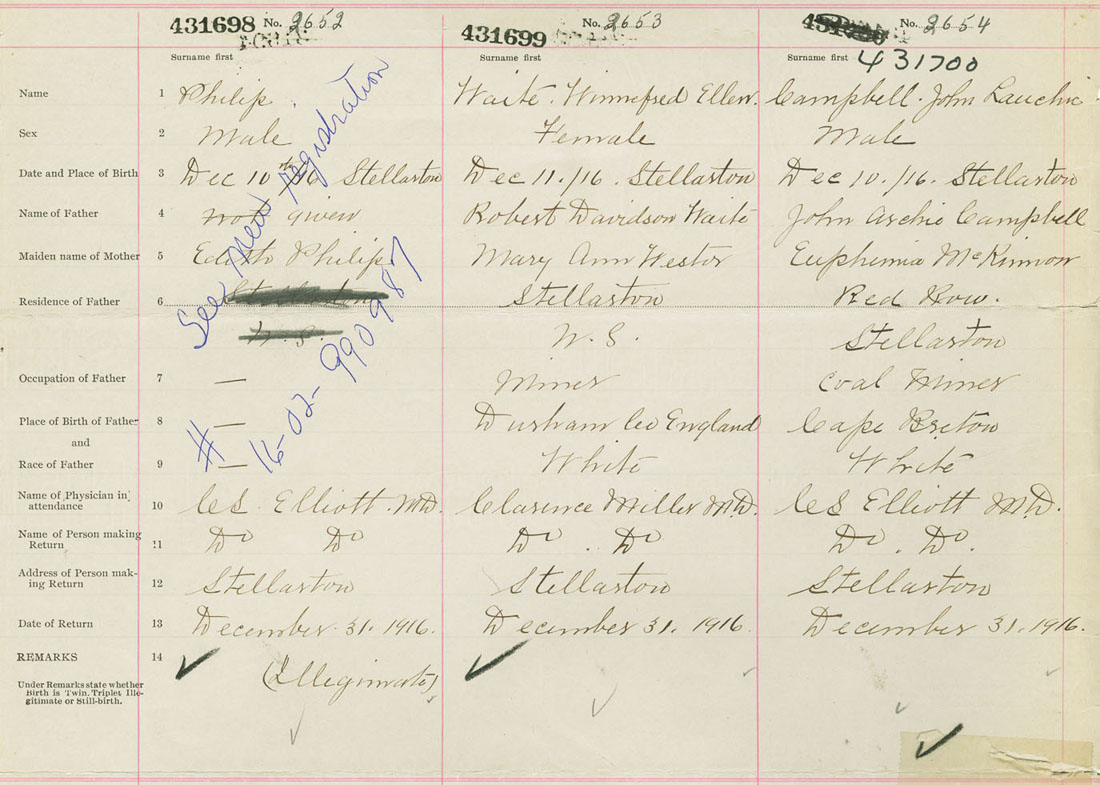 431698 No. 2652 431699 No. 2653 No. 2654
Surname first Surname first Surname first 431700
Name 1 Philip Waite. Winnefred Ellen. Campbell. John Lauchie
Sex 2 Male Female Male
Date and Place of Birth 3 Dec 10th /16 Stellarton Dec 11./16. Stellarton Dec 10./16. Stellarton
Name of Father 4 not given Robert Davidson Waite John Archie Campbell
Maiden name of Mother 5 Edith Philip Mary Ann Westor Euphimia McKinnon
Residence of Father 6 Stellarton Red Row.
N.S. N.S. Stellarton
Occupation of Father 7 — Miner Coal Miner
Place of Birth of Father 8 — Durham Co England Cape Breton
and
Race of Father 9 — White White
Name of Physician in
attendance 10 CS. Elliott. MD. Clarence Miller M.D. CS Elliott MD.
Name of Person making
Return 11 Do Do Do. Do Do. Do.
Address of Person mak-
ing Return 12 Stellarton Stellarton Stellarton
Date of Return 13 December 31. 1916. December 31. 1916. December 31. 1916.
REMARKS 14 (Illegimate)
Under Remarks state whether
Birth is Twin. Triplet Ille-
gitimate or Still-birth.
See new registration
# 16-02-990987